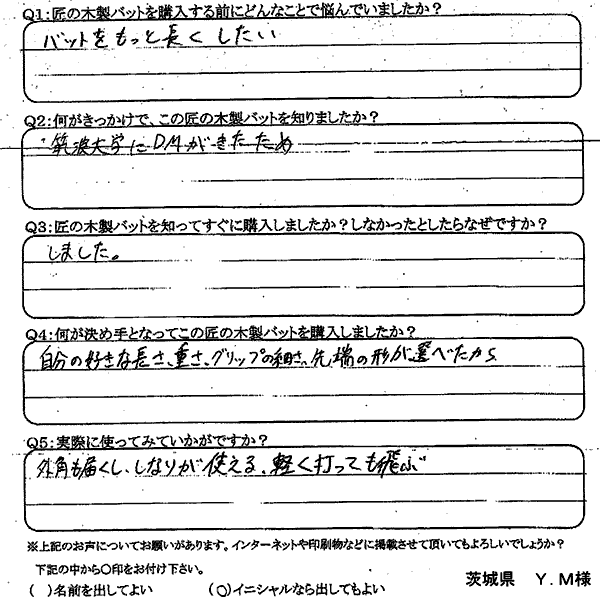 Q1:匠の木製バットを購入する前にどんなことで悩んでいましたか？
バットをもっと長くしたい
Q2:何がきっかけで、この匠の木製バットを知りましたか？
筑波大学にDMがきたため
Q3:匠の木製バットを知ってすぐに購入しましたか？しなかったとしたらなぜですか？
しました。
Q4:何が決め手となってこの匠の木製バットを購入しましたか？
自分の好きな長さ、重さ、グリップの細さ、先端の形が選べたから
Q5:実際に使ってみていかがですか？
外角も届くし、しなりが使える、軽く打っても飛ぶ
※上記のお声についてお願いがあります。インターネットや印刷物などに掲載させて頂いてもよろしいでしょうか？
下記の中から〇印をお付け下さい。
（ ）名前を出してよい （〇）イニシャルなら出してもよい
茨城県 Y.M様